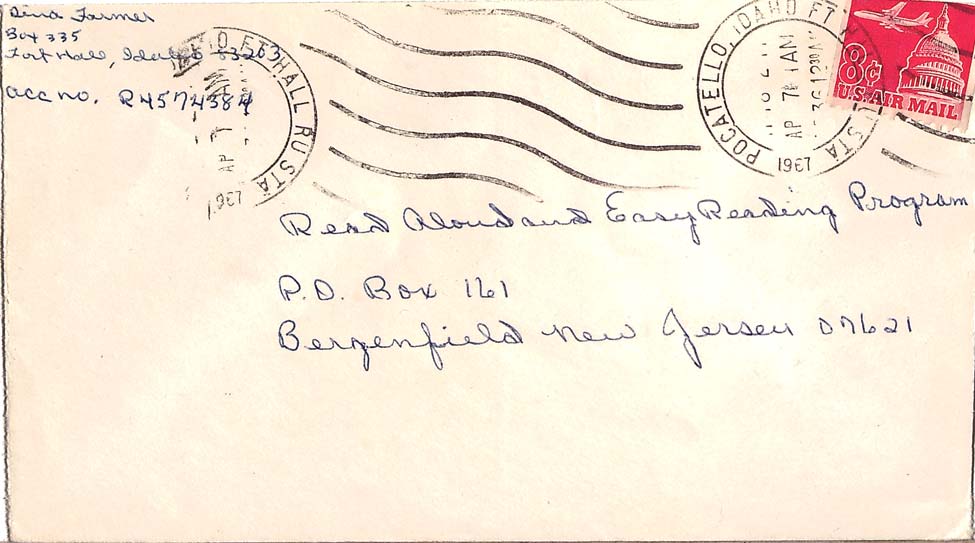 Dina Farmer
Box 335
Fort Hall, Idaho 83203
acc no. R4574384
HALL RU STA
AP 7
1967
POCATELLO, IDAHO FT
STA
AP 7 1AM
1967
8¢
U.S. AIR MAIL
Read Aloud and Easy Reading Program
P.O. Box 161
Bergenfield New Jersey 07621